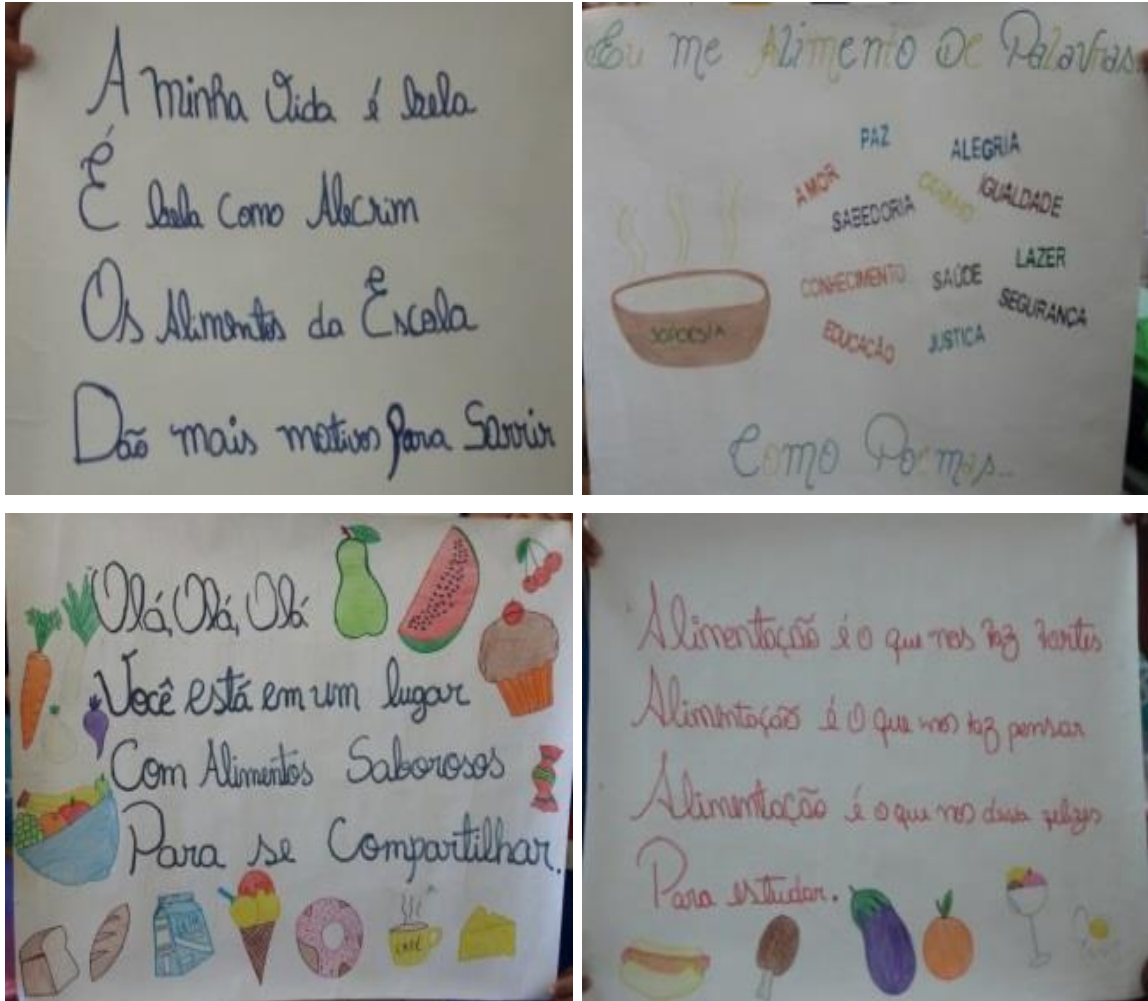 A minha Vida é bela
É bela como Alecrim
Os Alimentos da Escola
Dão mais motivos para Sorrir
Eu me Alimento De Palavras
PAZ
ALEGRIA
AMOR
CARINHO
IGUALDADE
SABEDORIA
LAZER
CONHECIMENTO
SAÚDE
SEGURANÇA
SOPOESIA
EDUCAÇÃO
JUSTICA
Como Poemas...
Olá, Olá, Olá
Você está em um lugar
Com Alimentos Saborosos
Para se Compartilhar.
CAFÉ
Alimentação é o que nos faz fortes
Alimentação é o que nos faz pensar
Alimentação é o que nos deixa felizes
Para estudar.